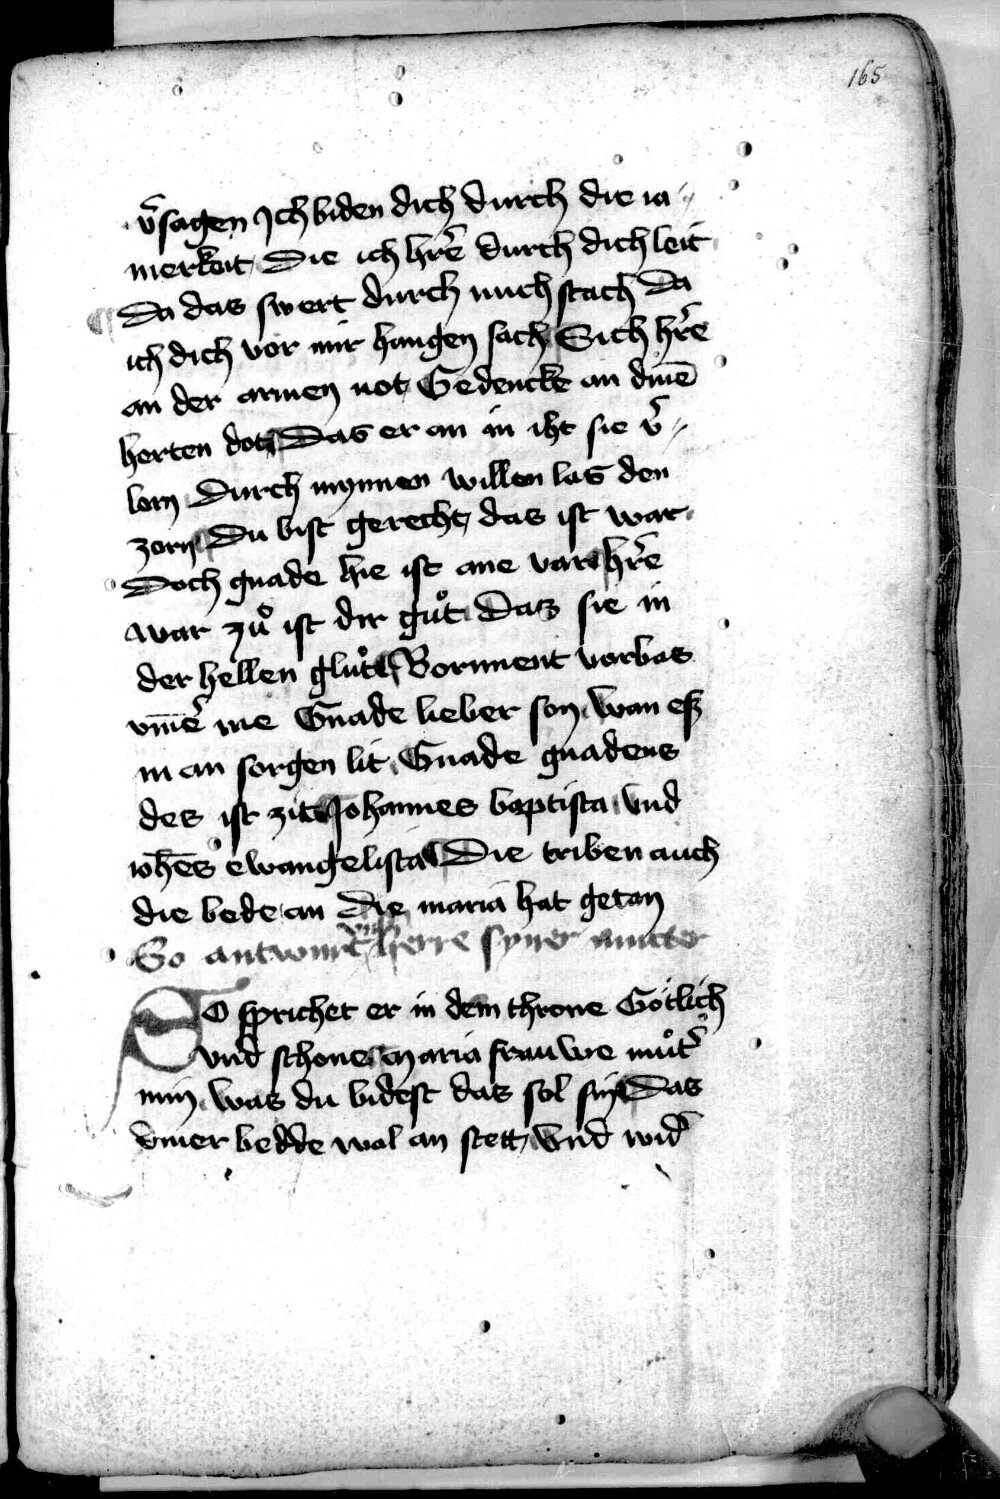 165
v̄sagen Ich biden dich durch die ia⸗
merkeit Die ich hr̄e durch dich leit
Da das swert durch mich stach Da
ich dich vor mir hangen sach Sich hr̄e
an der armen not Gedencke an dinē
herten dot Das er an in iht sie v̄⸗
lorn Durch mynnen willen las den
zorn Du bist gerecht das ist war
Doch gnade hie ist ane var hr̄e
war zuͦ ist dir guͦt Daz sie in
der hellen gluͦt Bornnent vorbas
vm̄er me Gnade lieber son wan eß
in an sorgen lit Gnade gnadens
des ist zit Johannes baptista vnd
ioh̄es ewangelista Die triben auch
die bede an Die maria hat getan
So antwurt vnß herre syner mutter
DO sprichet er in dem throne Götlich
vnd schone maria frauwe muͦt̄
min was du bidest das sol sin Das
diner bedde wol an stett vnd wid̄